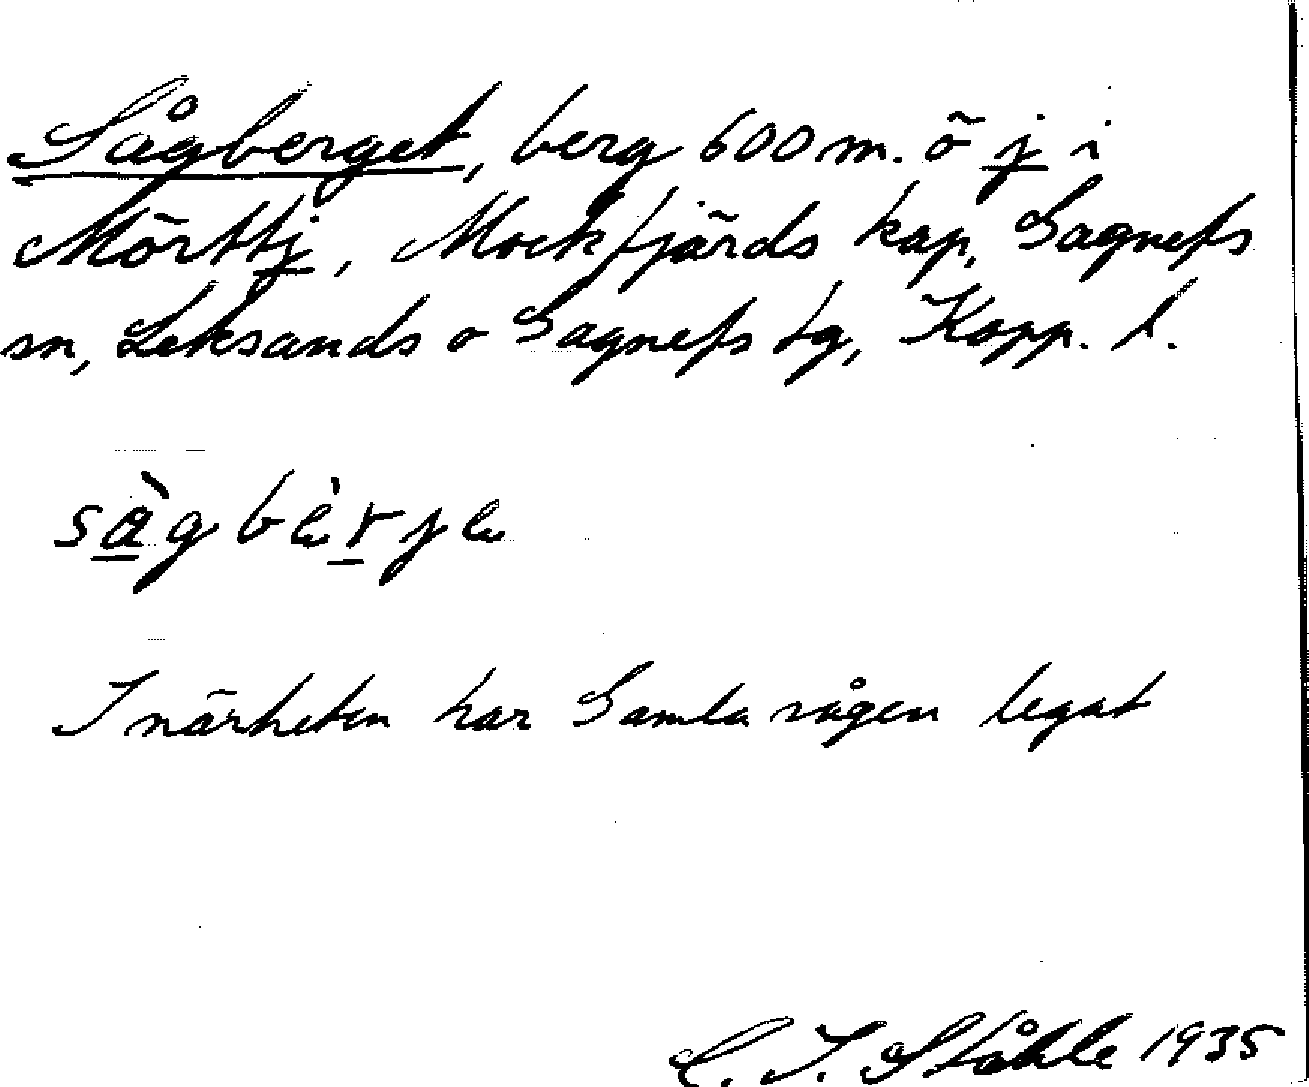 Sågberget, berg 600 m. ö j i
Mörttj, Mockfjärds kap, Gagnefs
sn, Leksands o Gagnefs tg, Kopp. l.
sàgbèrjе
I närheten har Gamla sågen legat
C. I. Ståhle 1935